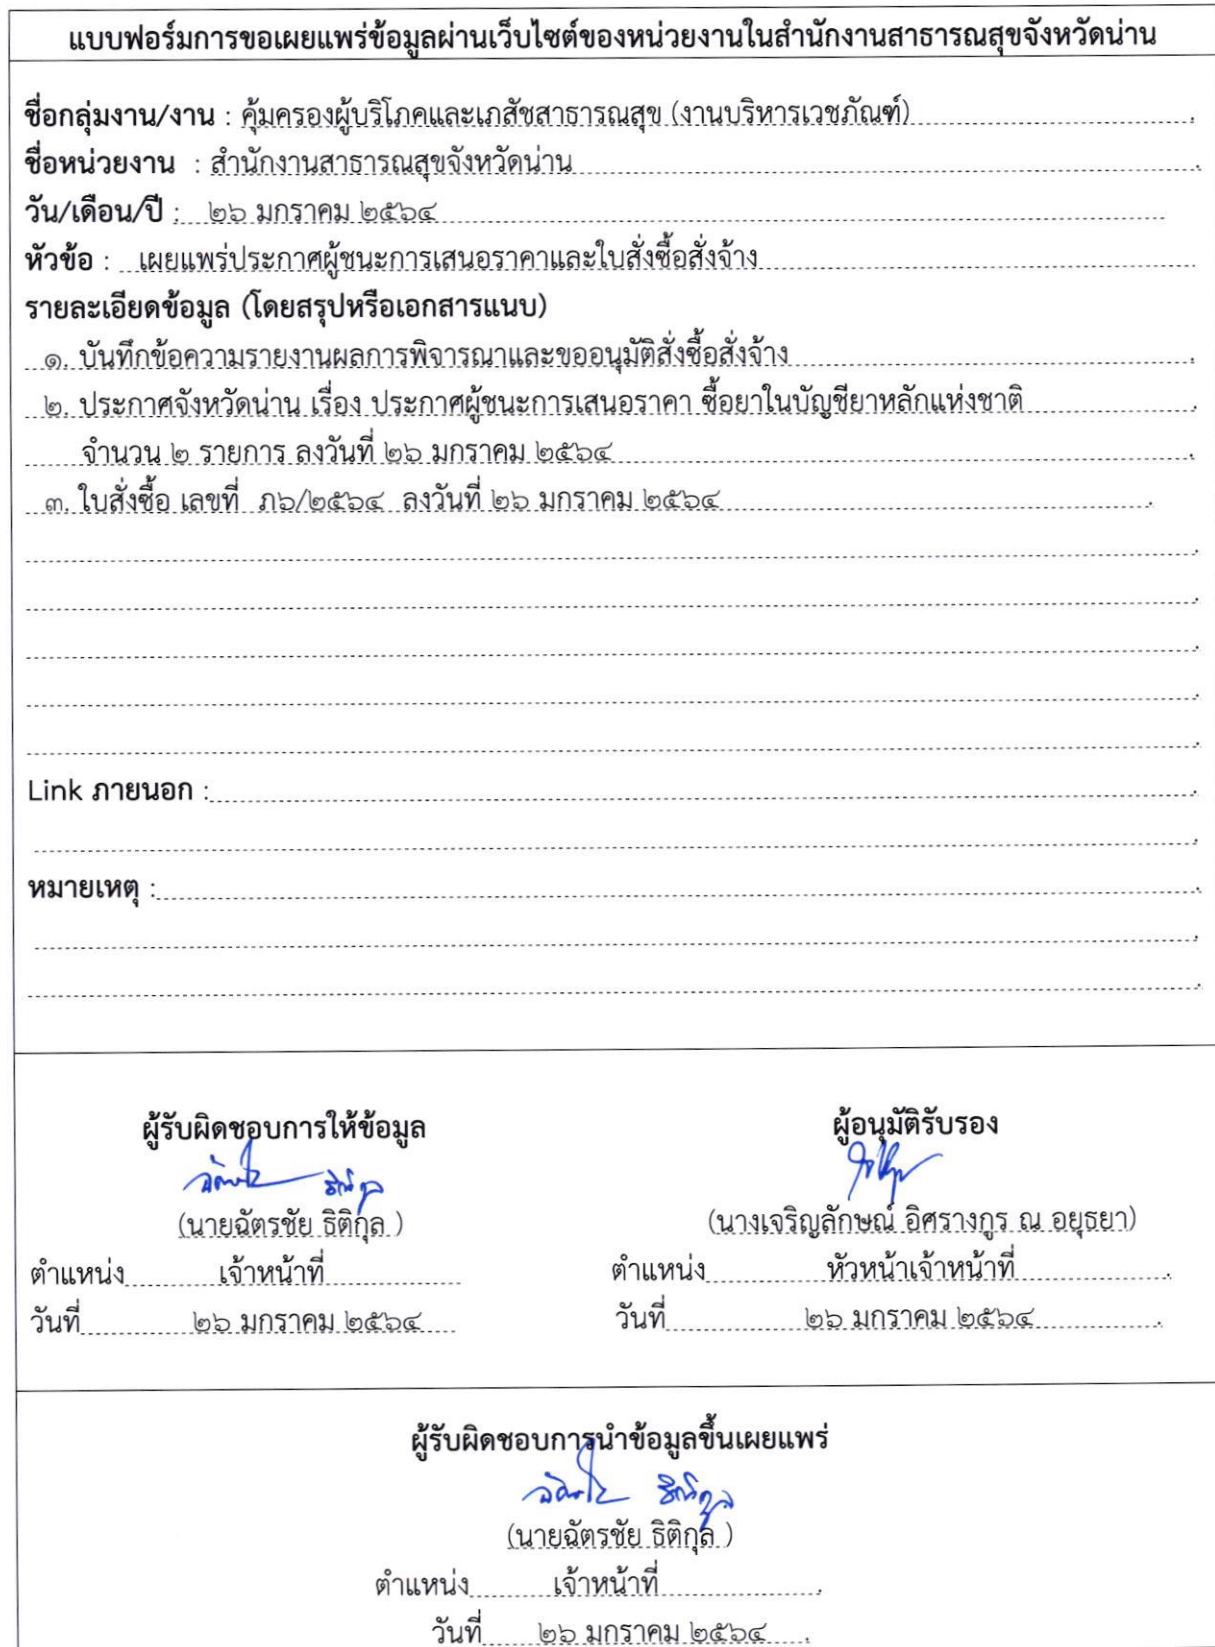 แบบฟอร์มการขอเผยแพร่ข้อมูลผ่านเว็บไซต์ของหน่วยงานในสำนักงานสาธารณสุขจังหวัดน่าน
ชื่อกลุ่มงาน/งาน : คุ้มครองผู้บริโภคและเภสัชสาธารณสุข (งานบริหารเวชภัณฑ์)
ชื่อหน่วยงาน : สำนักงานสาธารณสุขจังหวัดน่าน
วัน/เดือน/ปี : ๒๖ มกราคม ๒๕๖๔
หัวข้อ : เผยแพร่ประกาศผู้ชนะการเสนอราคาและใบสั่งซื้อสั่งจ้าง
รายละเอียดข้อมูล (โดยสรุปหรือเอกสารแนบ)
๑. บันทึกข้อความรายงานผลการพิจารณาและขออนุมัติสั่งซื้อสั่งจ้าง
๒. ประกาศจังหวัดน่าน เรื่อง ประกาศผู้ชนะการเสนอราคา ซื้อยาในบัญชียาหลักแห่งชาติ
จำนวน ๒ รายการ ลงวันที่ ๒๖ มกราคม ๒๕๖๔
๓. ใบสั่งซื้อ เลขที่ ภ๖/๒๕๖๔ ลงวันที่ ๒๖ มกราคม ๒๕๖๔
Link ภายนอก :
หมายเหตุ :
ผู้รับผิดชอบการให้ข้อมูล
ฉัตรชัย ธิติกุล
(นายฉัตรชัย ธิติกุล )
ตำแหน่ง เจ้าหน้าที่
วันที่ ๒๖ มกราคม ๒๕๖๔
ผู้อนุมัติรับรอง
(นางเจริญลักษณ์ อิศรางกูร ณ อยุธยา)
ตำแหน่ง หัวหน้าเจ้าหน้าที่
วันที่ ๒๖ มกราคม ๒๕๖๔
ผู้รับผิดชอบการนำข้อมูลขึ้นเผยแพร่
ฉัตรชัย ธิติกุล
(นายฉัตรชัย ธิติกุล )
ตำแหน่ง เจ้าหน้าที่
วันที่ ๒๖ มกราคม ๒๕๖๔